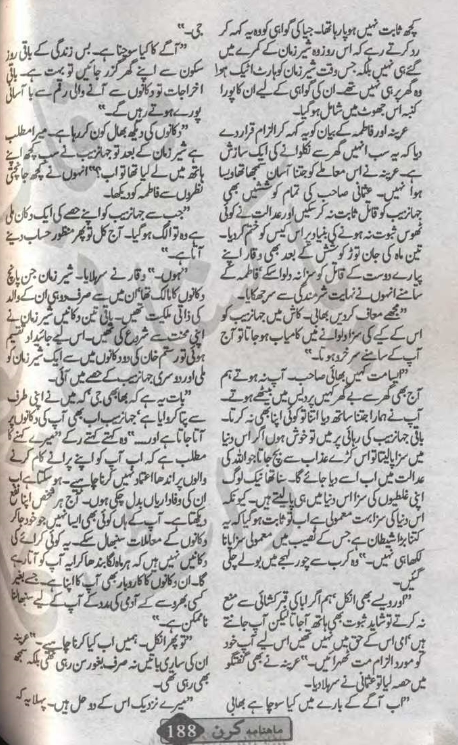 کچھ ثابت نہیں ہو پا رہا تھا۔ جیا کی گواہی کو وہ یہ کہہ کر
رد کرتے رہے کہ اس روز وہ شیر زمان کے کمرے میں
گئے ہی نہیں بلکہ جس وقت شیر زمان کو ہارٹ اٹیک ہوا
وہ گھر پر ہی نہیں تھے۔ ان کی گواہی کے لیے ان کا پورا
کنبہ اس جھوٹ میں شامل ہو گیا۔
عرینہ اور فاطمہ کے بیان کو یہ کہہ کر الزام قرار دے
دیا کہ یہ سب انہیں گھر سے نکلوانے کی ایک سازش
ہے۔ عرینہ نے اس معاملے کو جتنا آسان سمجھا تھا ویسا
ہوا نہیں۔ عثمانی صاحب کی تمام کوششیں بھی
جہانزیب کو قاتل ثابت نہ کر سکیں اور عدالت نے کوئی
ٹھوس ثبوت نہ ہونے کی بنیاد پر اس کیس کو ختم کر دیا۔
تین ماہ کی جان توڑ کوشش کے بعد بھی وقار اپنے
پیارے دوست کے قاتل کو سزا نہ دلوا سکے فاطمہ کے
سامنے انہوں نے نہایت شرمندگی سے سر جھکایا۔
"مجھے معاف کر دیں بھابی۔ کاش میں جہانزیب کو
اس کے کیے کی سزا دلوانے میں کامیاب ہو جاتا تو آج
آپ کے سامنے سرخرو ہوتا۔"
"ایسا مت کہیں بھائی صاحب۔ آپ نہ ہوتے ہم
آج بھی گھر سے بے گھر کہیں پردیس میں بیٹھے ہوتے۔
آپ نے ہمارا جتنا ساتھ دیا اتنا تو کوئی اپنا بھی نہ کرتا۔
باقی جہانزیب کی رہائی پر میں تو خوش ہوں اگر اس دنیا
میں سزا پا لیتا تو اس کڑے عذاب سے بچ جاتا جو اللہ کی
عدالت میں اب اسے دیا جائے گا۔ سنا تھا نیک لوگ
اپنی غلطیوں کی سزا اس دنیا میں ہی پا لیتے ہیں۔ کیونکہ
اس دنیا کی سزا بہت معمولی ہے اب تو ثابت ہو گیا کہ یہ
کتنا بڑا شیطان ہے جس کے نصیب میں معمولی سزا پانا
لکھا ہی نہیں۔" وہ کرب سے چور لہجے میں بولے چلی
گئیں۔
"اور ویسے بھی انکل! ہم اگر ابا کی قبر کشائی سے منع
نہ کرتے تو شاید ثبوت بھی ہاتھ آ جاتا لیکن آپ جانتے
ہیں امی اس کے حق میں نہیں تھیں اس لیے آپ خود
کو مورد الزام مت ٹھہرائیں۔" عرینہ نے بھی گفتگو
میں حصہ لیا تو عثمانی نے سر ہلا دیا۔
"اب آگے کے بارے میں کیا سوچا ہے بھابی
جی۔"
"آگے کا کیا سوچنا ہے۔ بس زندگی کے باقی روز
سکون سے اپنے گھر گزر جائیں تو بہت ہے۔ باقی
اخراجات تو دکانوں سے آنے والی رقم سے با آسانی
پورے ہوتے رہیں گے۔"
"دکانوں کی دیکھ بھال کون کر رہا ہے۔ میرا مطلب
ہے شیر زمان کے بعد تو جہانزیب نے سب کچھ اپنے
ہاتھ میں لے لیا تھا تو اب؟" انہوں نے کچھ جانچتی
نظروں سے فاطمہ کو دیکھا۔
"جب سے جہانزیب کو اپنے حصے کی ایک دکان ملی
ہے وہ تو الگ ہو گیا۔ آج کل تو پھر منظور حساب دینے
آتا ہے۔"
"ہوں۔" وقار نے سر ہلایا۔ شیر زمان جن پانچ
دکانوں کا مالک تھا ان میں سے صرف دو ہی ان کے والد
کی ذاتی ملکیت تھیں۔ باقی تین دکانیں شیر زمان نے
اپنی محنت سے شروع کی تھیں۔ اس لیے جائیداد تقسیم
ہوئی تو رستم خان کی دو دکانوں میں سے ایک شیر زمان کو
ملی اور دوسری جہانزیب کے حصے میں آئی۔
"بات یہ ہے کہ بھابھی جی! کہ میں نے اپنی طرف
سے پتا کروایا ہے جہانزیب اب بھی آپ کی دکانوں پر
آتا جاتا ہے اور۔۔۔" وہ کہتے کہتے رکے "میرے کہنے کا
مطلب ہے کہ اب آپ کو اپنے پرانے کام کرنے
والوں پر اندھا اعتماد نہیں کرنا چاہیے۔ ہو سکتا ہے اب
ان کی وفاداریاں بدل چکی ہوں۔ آج ہر شخص اپنا نفع
دیکھتا ہے۔ آپ کے ہاں کوئی بھی ایسا نہیں جو خود جا کر
دکانوں کے معاملات سنبھال سکے۔ یہ کوئی کرائے کی
دکانیں نہیں ہیں کہ ہر ماہ لگا بندھا کرایہ آپ کو آتا رہے
گا۔ ان دکانوں کا کاروبار بھی آپ کا اپنا ہے جسے بغیر
کسی بھروسے کے آدمی کی مدد کے آپ کے لیے سنبھالنا
ناممکن ہے۔"
"تو پھر انکل۔ ہمیں اب کیا کرنا چاہیے۔" عرینہ
ان کی ساری باتیں نہ صرف بغور سن رہی تھی بلکہ سمجھ
بھی رہی تھی۔
"میرے نزدیک اس کے دو حل ہیں۔ پہلا یہ کہ
ماہنامہ کرن 188